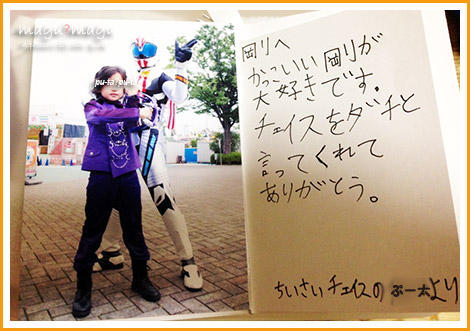 mugu*mugu
pu-ta?pu-u
剛りへ
かっこいい剛が
大好きです。
チェイスをダチと
言ってくれて
ありがとう。
ちいさいチェイスの ぷー太より